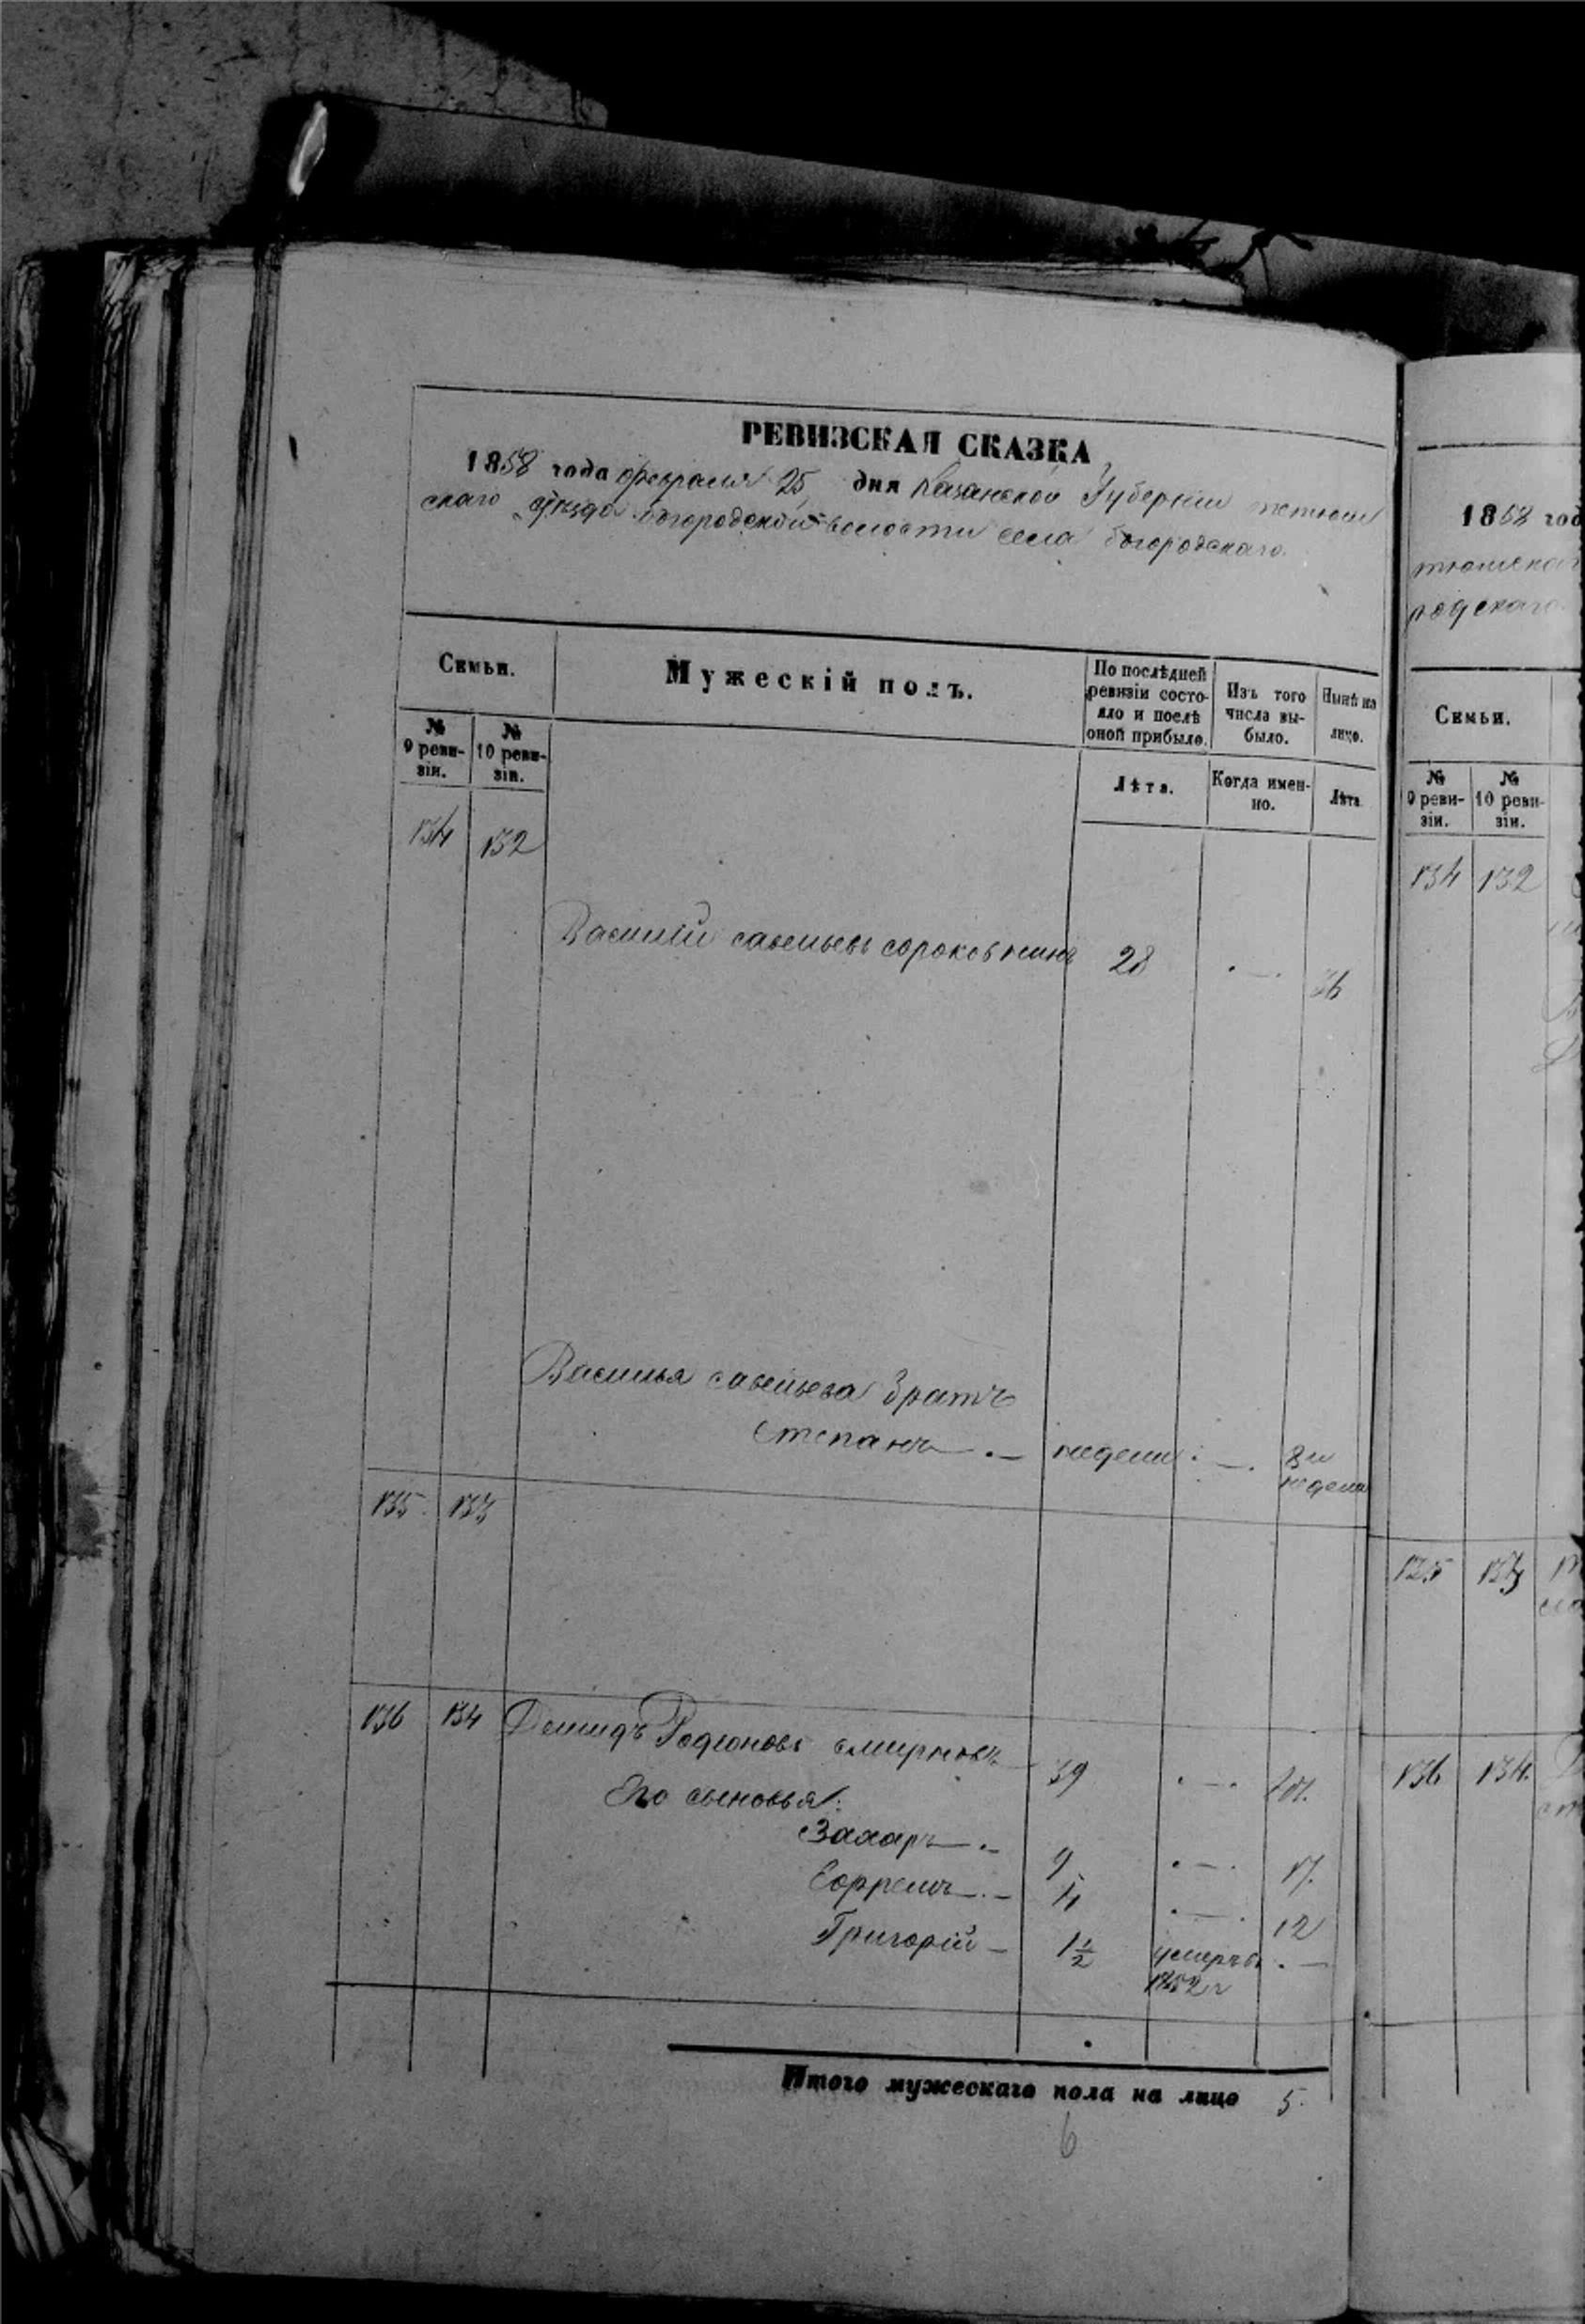 РЕВИЗСКАЯ СКАЗКА
1858 года февраля 25 дня Казанской Губернии тетюш
скаго уѣзда богородской волости села богородскаго.
Семьи.
Мужескій полъ.
По послѣдней ревизіи состо-
яло и послѣ оной прибыло.
Изъ того числа вы-
было.
Нынѣ на лицо.
№ 9 реви-
зіи.
№ 10 реви-
зіи.
Лѣта.
Когда имен-
но.
Лѣта
134 132
Василий савельевъ 28 . — . 36
Василья савельева братъ
Степанъ — . — недели . — . 8 и
недели
135. 133
136 134 Демидъ Родионовъ смирновъ — 39 . — .
Его сыновья:
Захаръ — . — 9 . — . 17.
Ефремъ — . — 4 . — . 12
Григорій — 1½ умеръ въ . —
1852 г
Итого мужескаго пола на лицо 5.
6
1858 год
тюшскаг
родскаго
Семьи.
№ 9 реви-
зіи.
№ 10 реви-
зіи.
134 132
135 133
136 134.